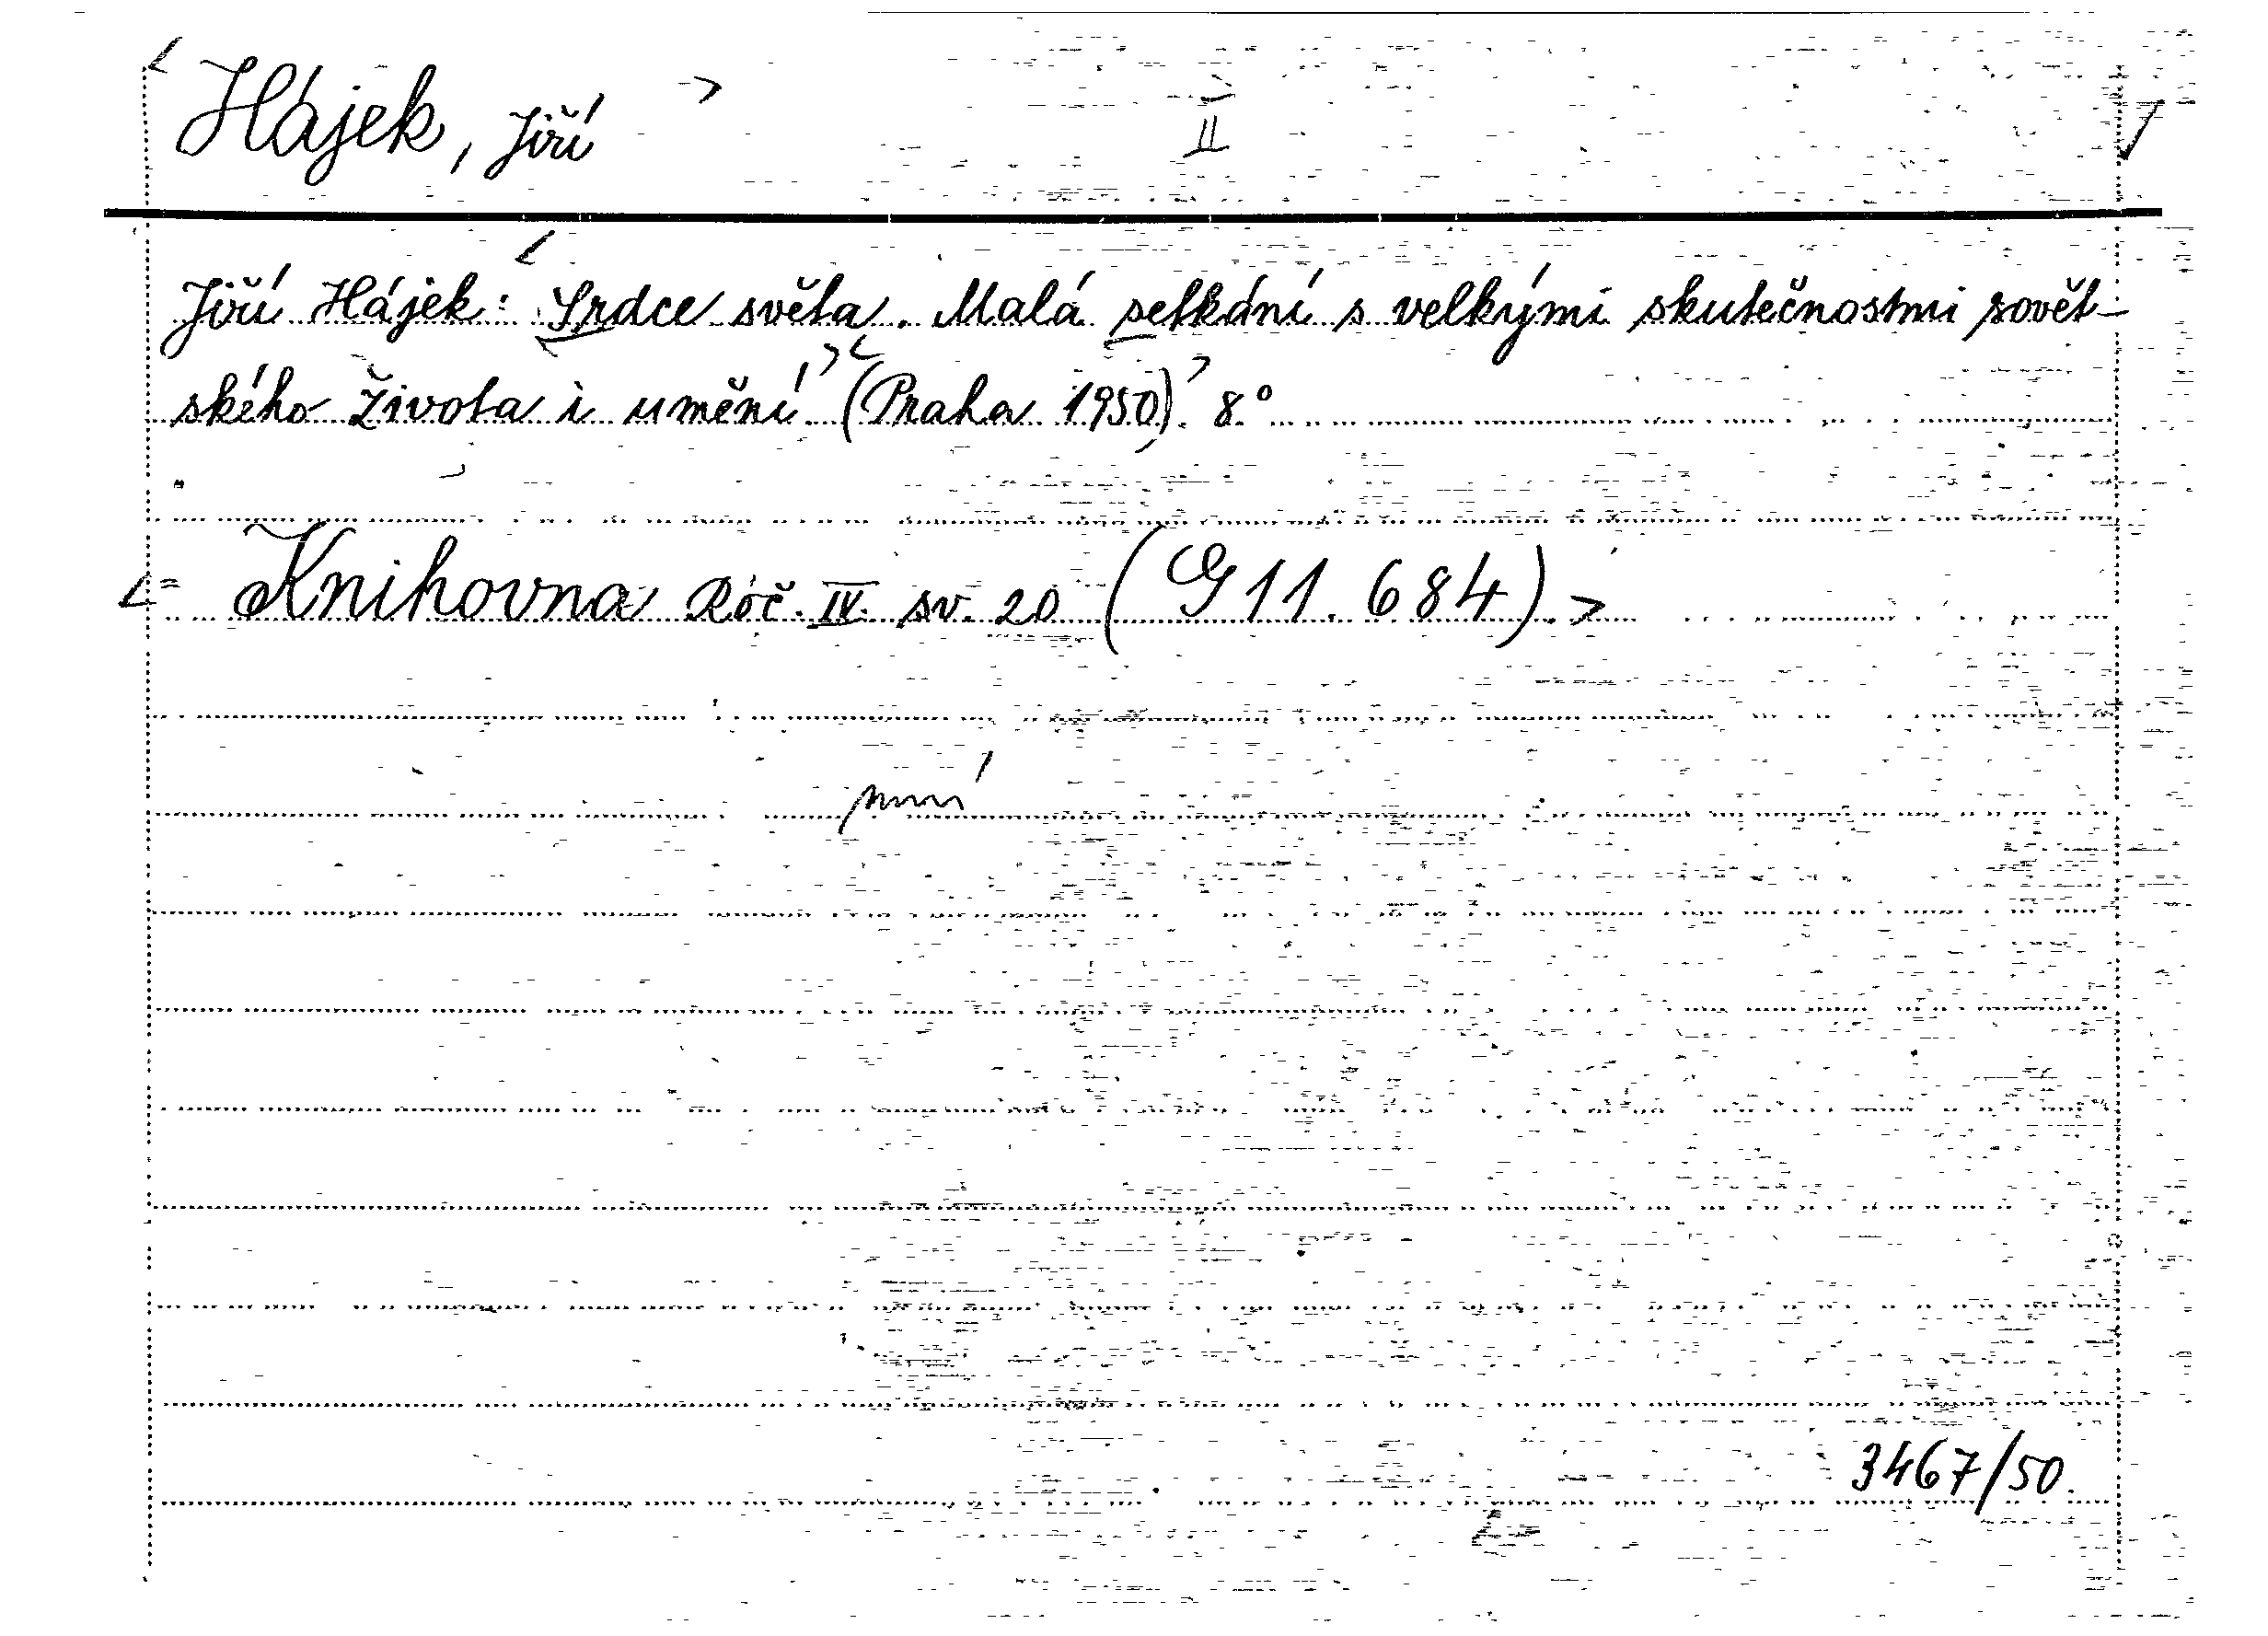 Hájek, Jiří
II
Jiří Hájek: Srdce světa. Malá setkání s velkými skutečnostmi sovět-
ského života i umění. (Praha 1950). 8°
= Knihovna Roč. IV. sv. 20 (G 11.684).
3467/50.